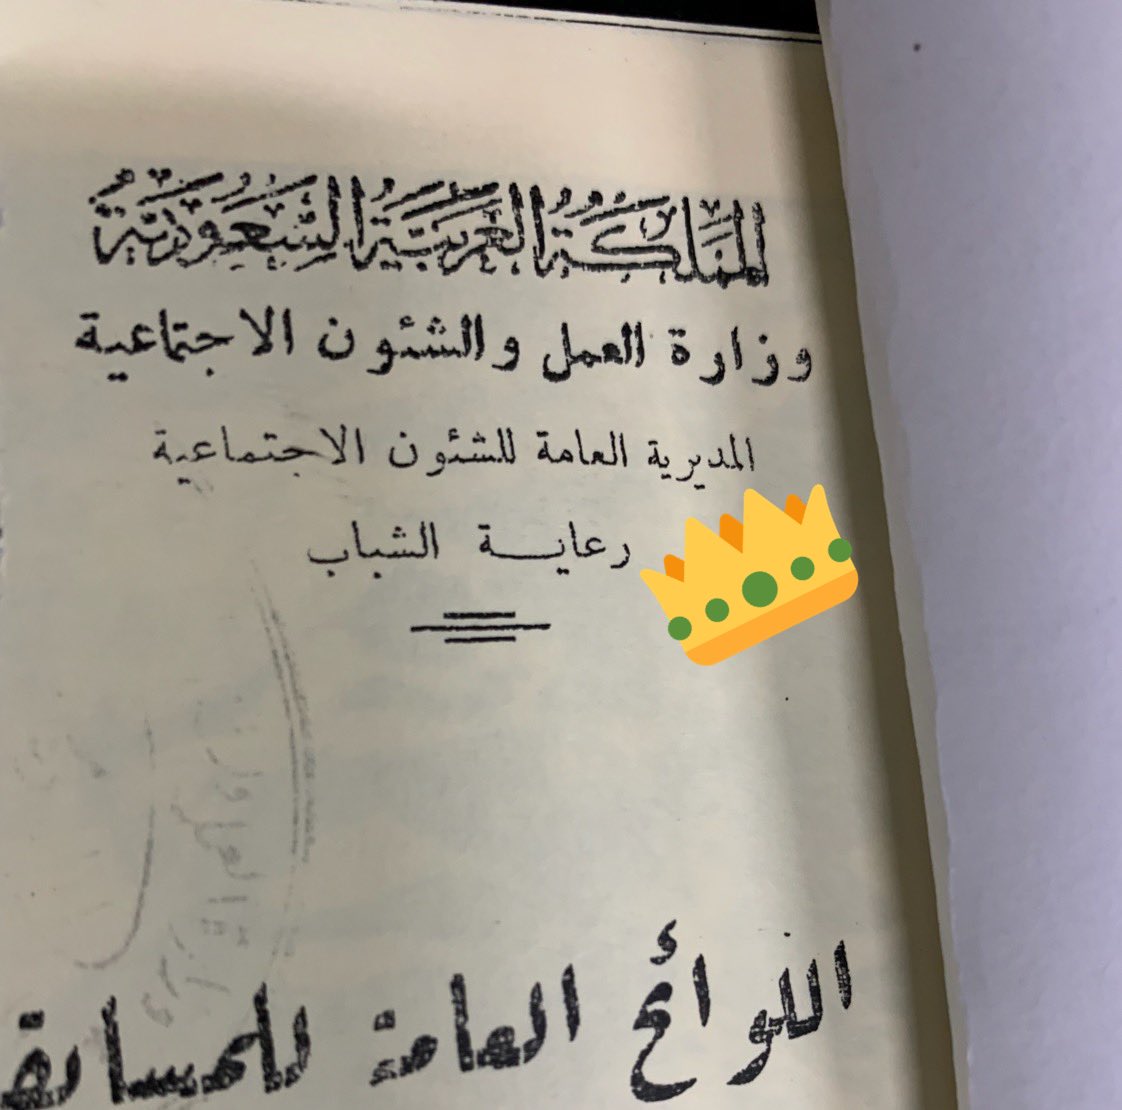 المملكة العربية السعودية
وزارة العمل والشئون الاجتماعية
المديرية العامة للشئون الاجتماعية
رعايـــة الشباب
اللوائح العامة